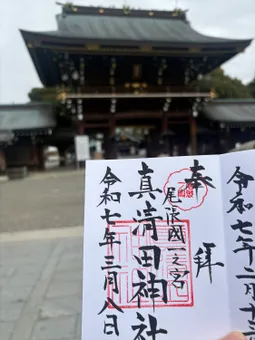 奉拝
尾張國一之宮
真清田神社
令和七年三月八日
令和七年二月十